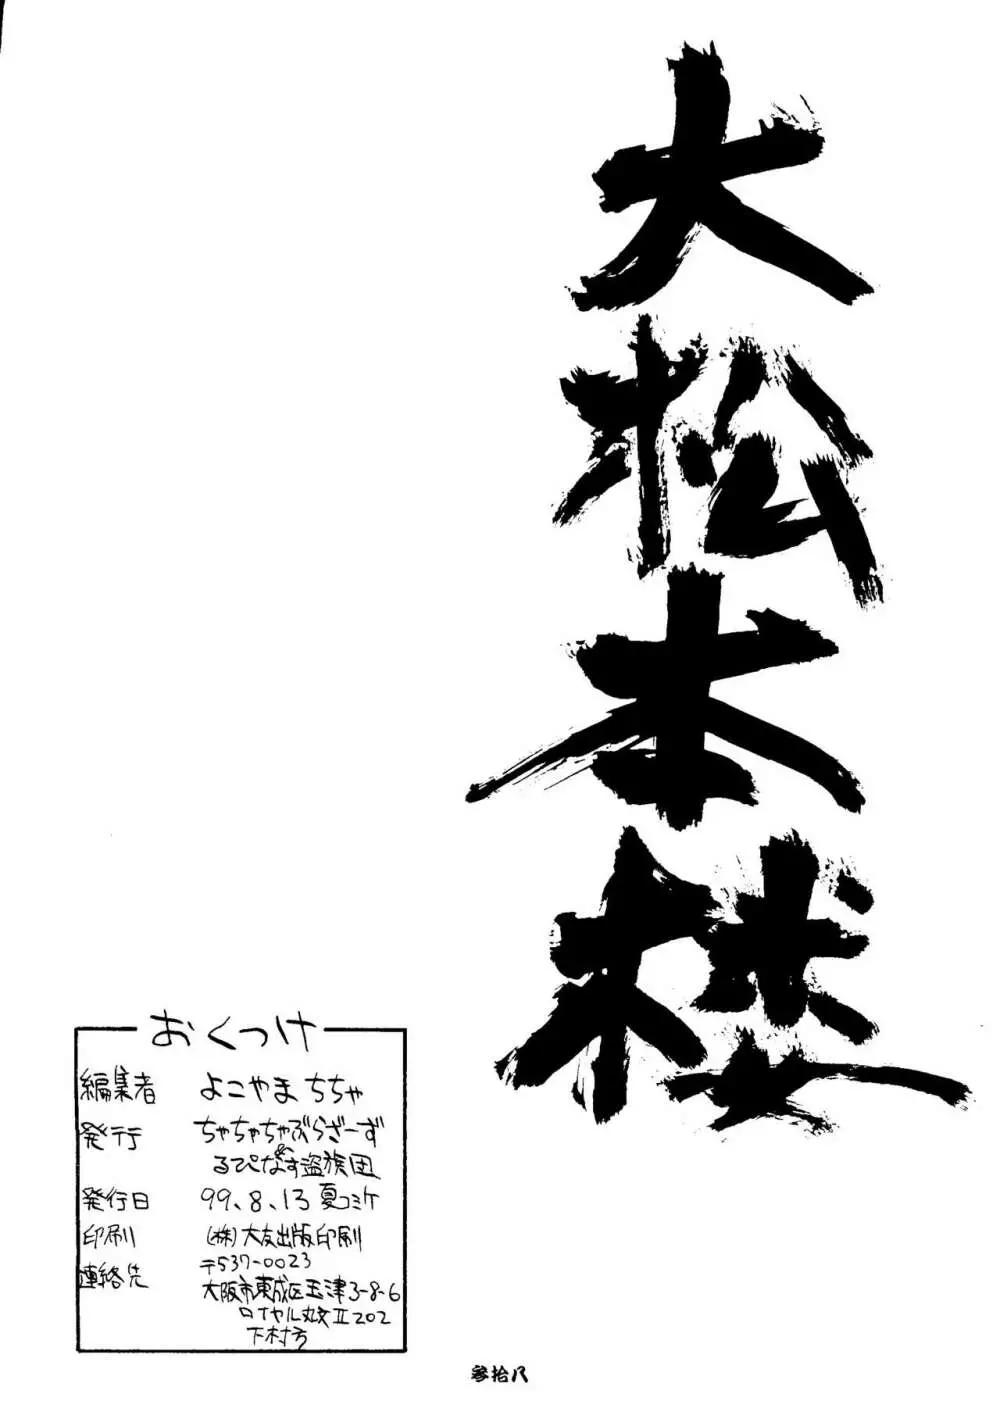 大松本楼
おくつけ
編集者 よこやま ちちゃ
発行 ちゃちゃちゃぶらざーず
るぴなす盗族団
発行日 99、8、13 夏コミケ
印刷 (株)大友出版印刷
連絡先 〒537-0023
大阪市東成区玉津3-8-6
ロイヤル丸文Ⅱ202
下村方
参拾八